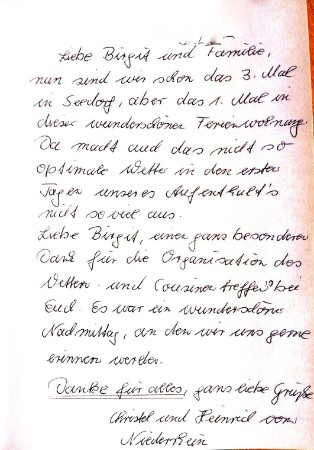 Liebe Birgit und Familie,
nun sind wir schon das 3. Mal
in Seedorf, aber das 1. Mal in
dieser wunderschönen Ferienwohnung.
Da macht auch das nicht so
optimale Wetter in den ersten
Tagen unseres Aufenthalt's
nicht so viel aus.
Liebe Birgit, einen ganz besonderen
Dank für die Organisation des
Vettern- und Cousinentreffens bei
Euch. Es war ein wunderschöner
Nachmittag, an den wir uns gerne
erinnern werden.
Danke für alles, ganz liebe Grüße
Christel und Heinrich vom
Niederrhein